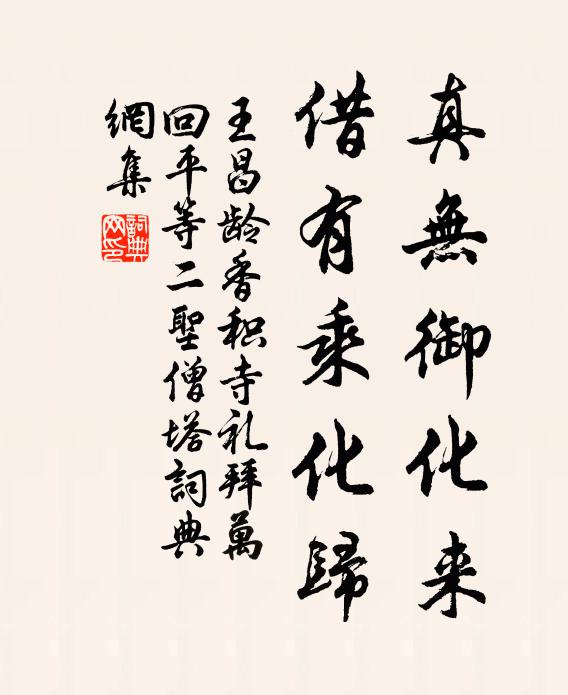 真無御化来
借有乘化歸
王昌龄香积寺礼拜萬
回平等二聖僧塔詞典
網集
詞典
网印